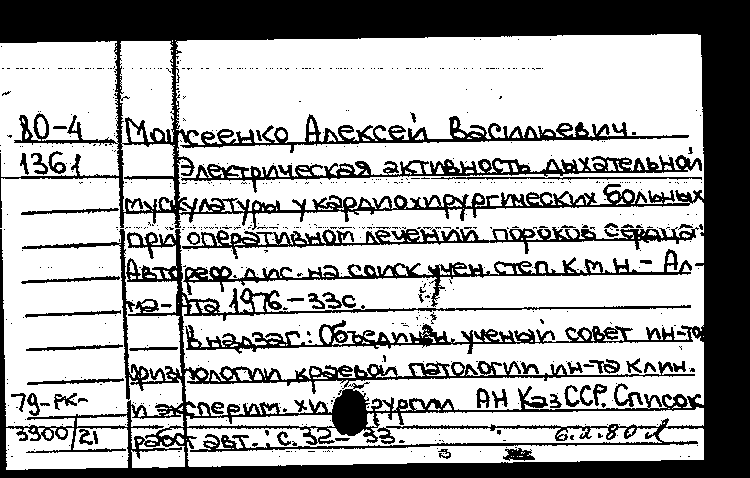 80-4 Моисеенко, Алексей Васильевич.
1361 Электрическая активность дыхательной
мускулатуры у кардиохирургических больных
при оперативном лечении пороков сердца:
Автореф. дис. на соиск. учен. степ. к.м.н. - Ал-
ма-Ата, 1976. - 33с.
В надзаг.: Объединен. ученый совет ин-тов
физиологии, краевой патологии, ин-та клин.
79-рк- и эксперим. хирургии АН КазССР. Список
3900/21 работ авт.: с. 32-33. 6.2.80